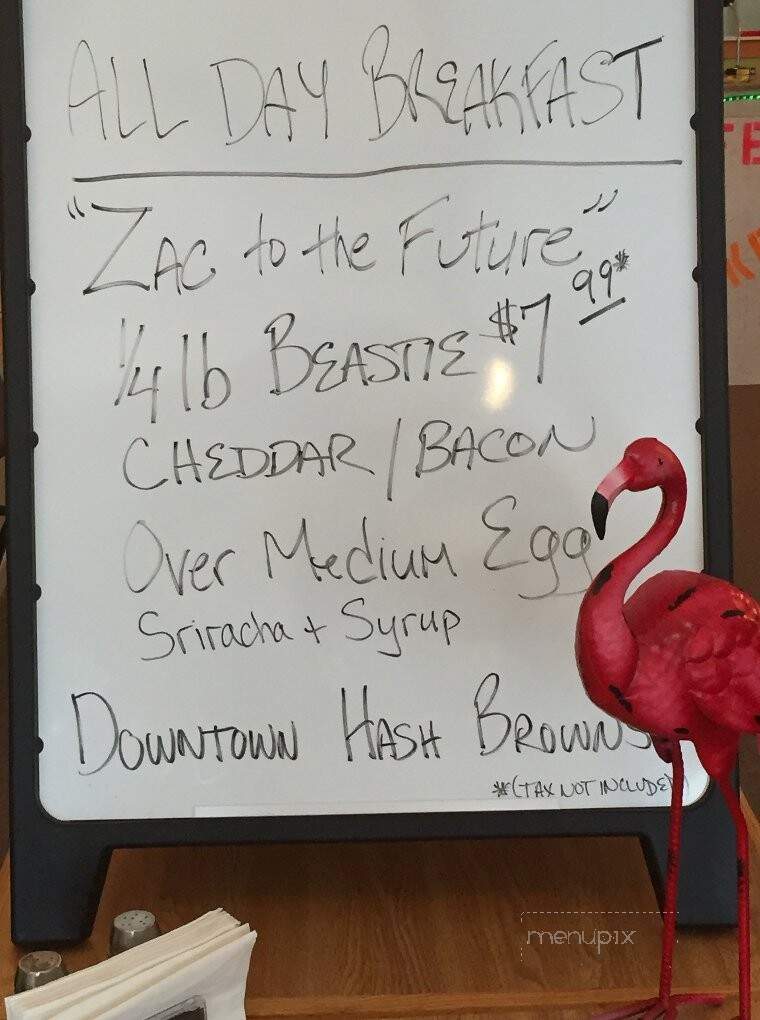 ALL DAY BREAKFAST
"ZAC to the Future"
1/4 lb BEASTIE $7.99*
CHEDDAR / BACON
Over Medium Egg
Sriracha + Syrup
DOWNTOWN HASH BROWNS
*(TAX NOT INCLUDED)
menupix